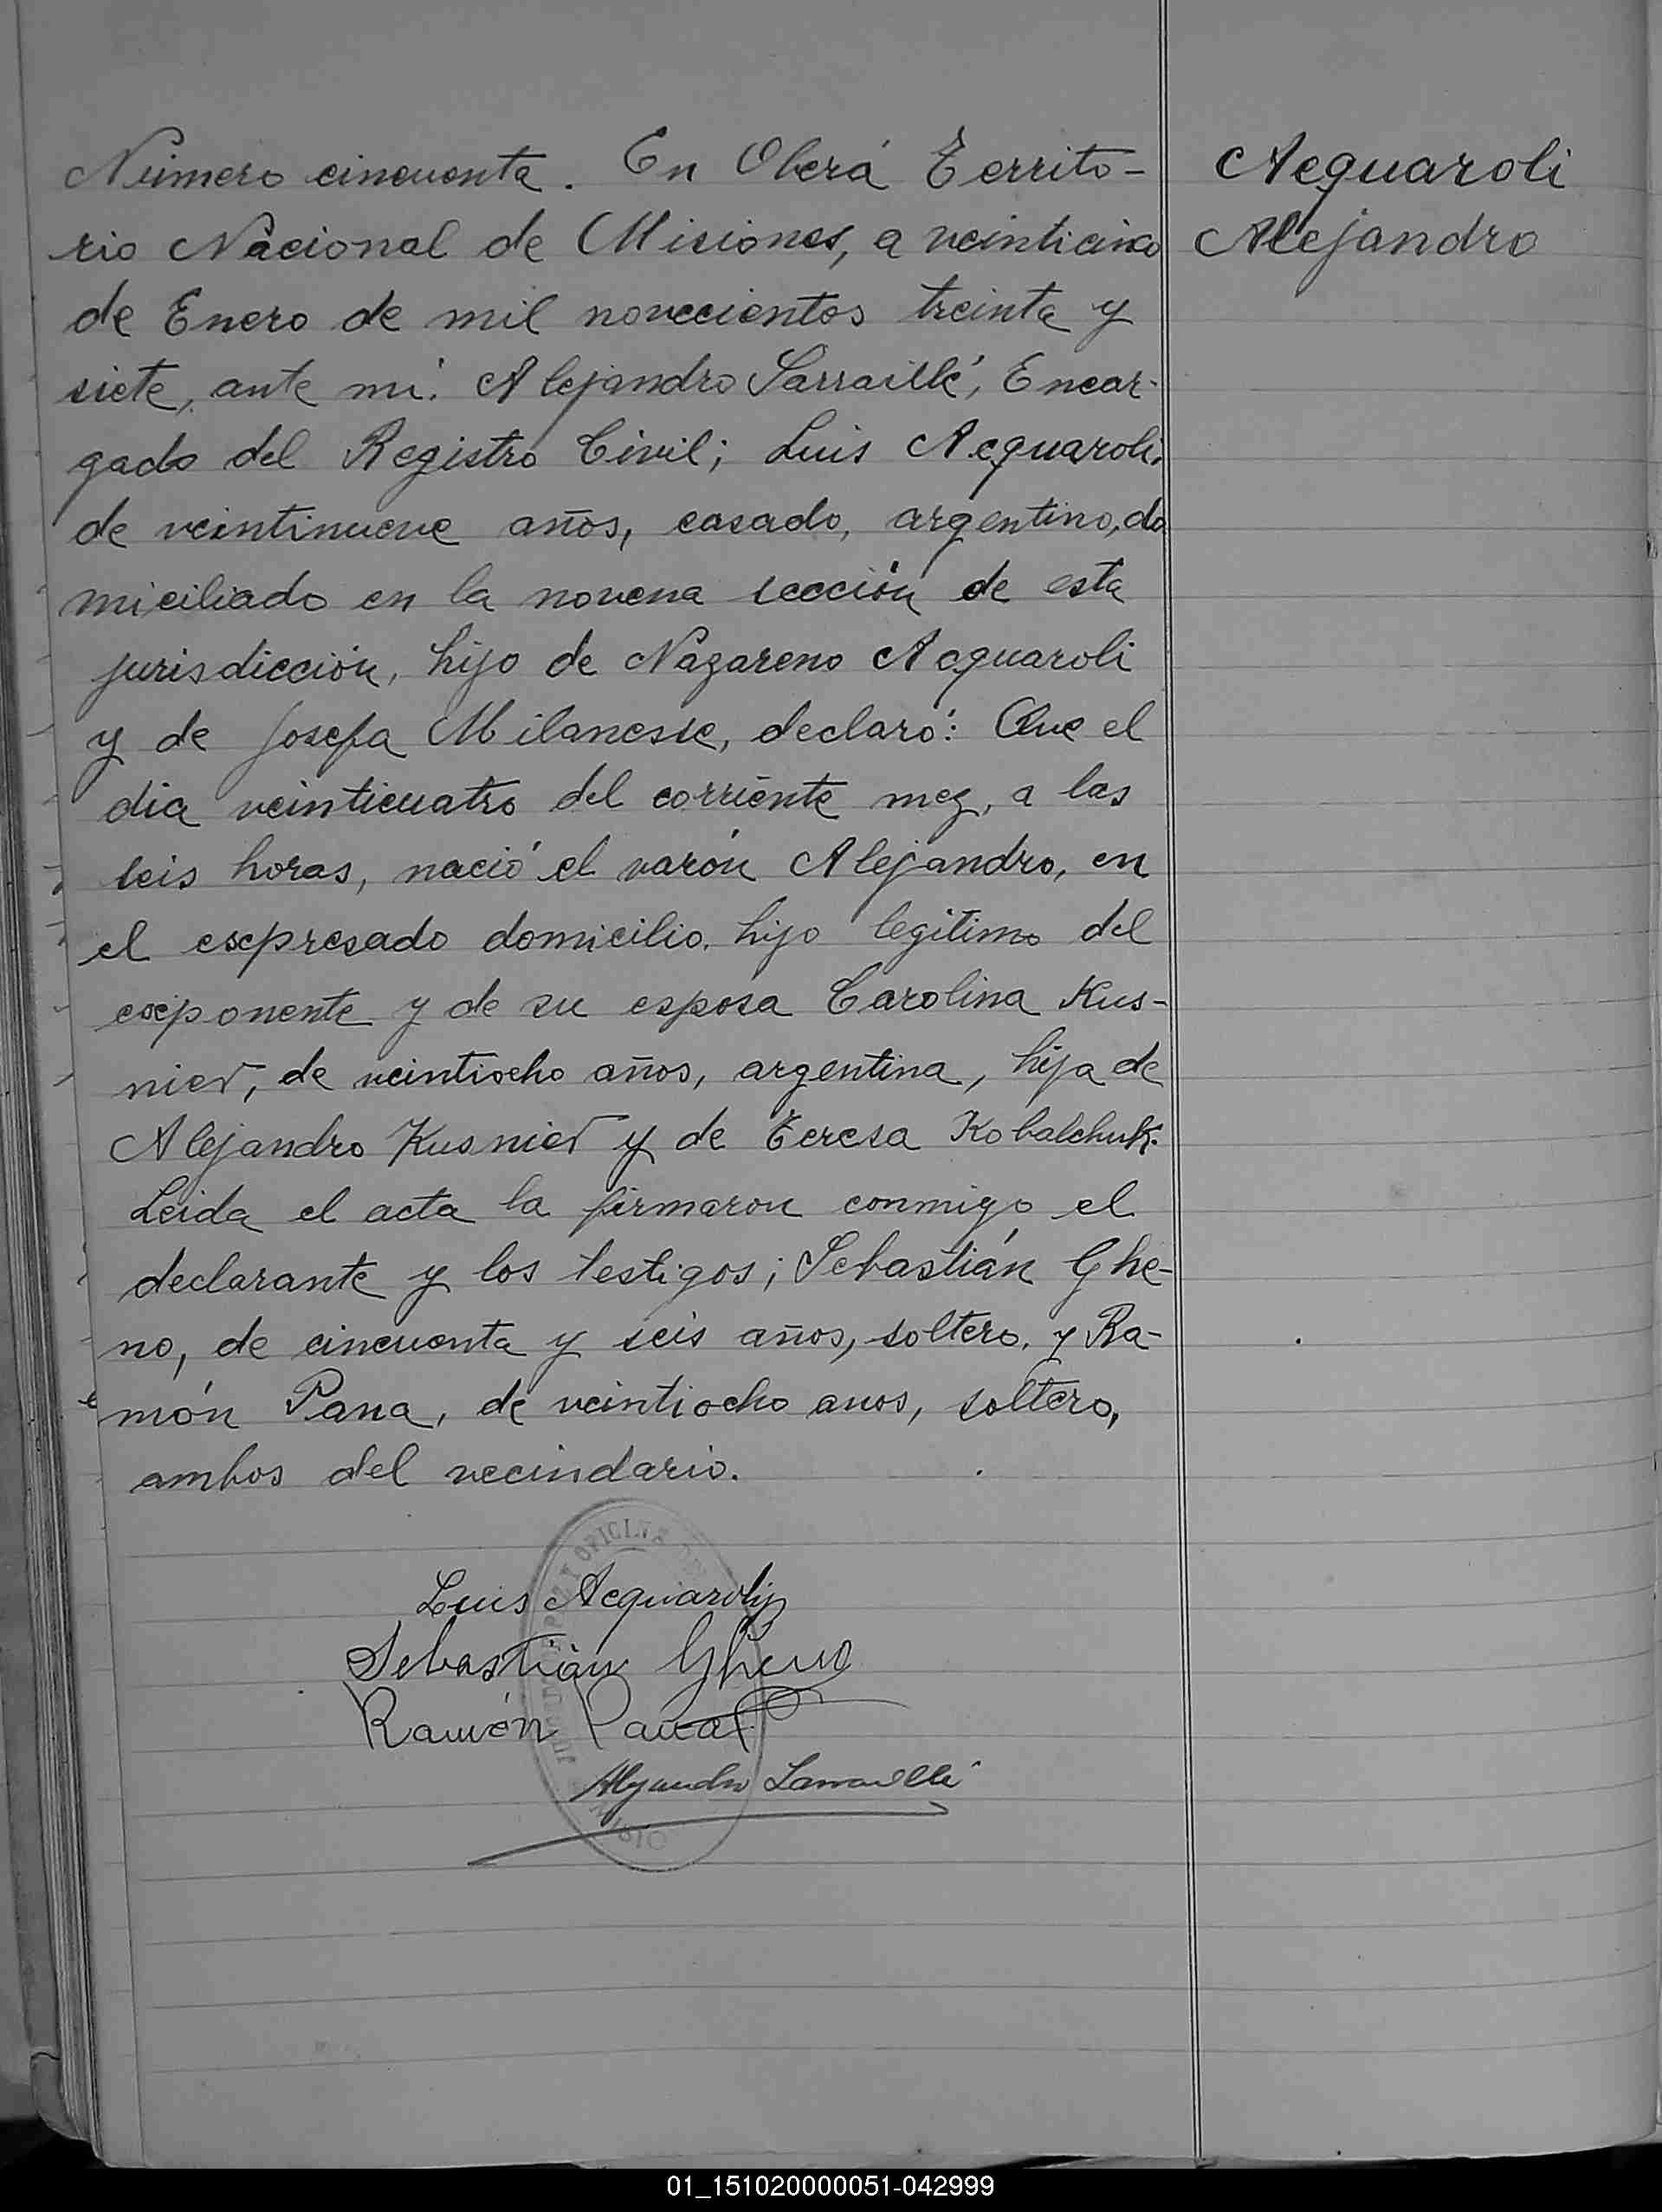 Número cincuenta. En Oberá Territo-
rio Nacional de Misiones, a veinticinco
de Enero de mil novecientos treinta y
siete, ante mí: Alejandro Sarraillé, Encar-
gado del Registro Civil; Luis Acquaroli,
de veintinueve años, casado, argentino, do
miciliado en la novena sección de esta
jurisdicción, hijo de Nazareno Acquaroli
y de Josefa Milanesse, declaró: Que el
día veinticuatro del corriente mez, a las
seis horas, nació el varón Alejandro, en
el expresado domicilio, hijo legítimo del
exponente y de su esposa Carolina Kus-
nier, de veintiocho años, argentina, hija de
Alejandro Kusnier y de Teresa Kobalchuk.
Leida el acta la firmaron conmigo el
declarante y los testigos; Sebastián Ghe-
no, de cincuenta y seis años, soltero, y Ra-
món Pana, de veintiocho anos, soltero,
ambos del vecindario.
Luis Acquaroli
Sebastián Gheno
Ramón Pana
Alejandro Sarraillé
Acquaroli
Alejandro
01_151020000051-042999